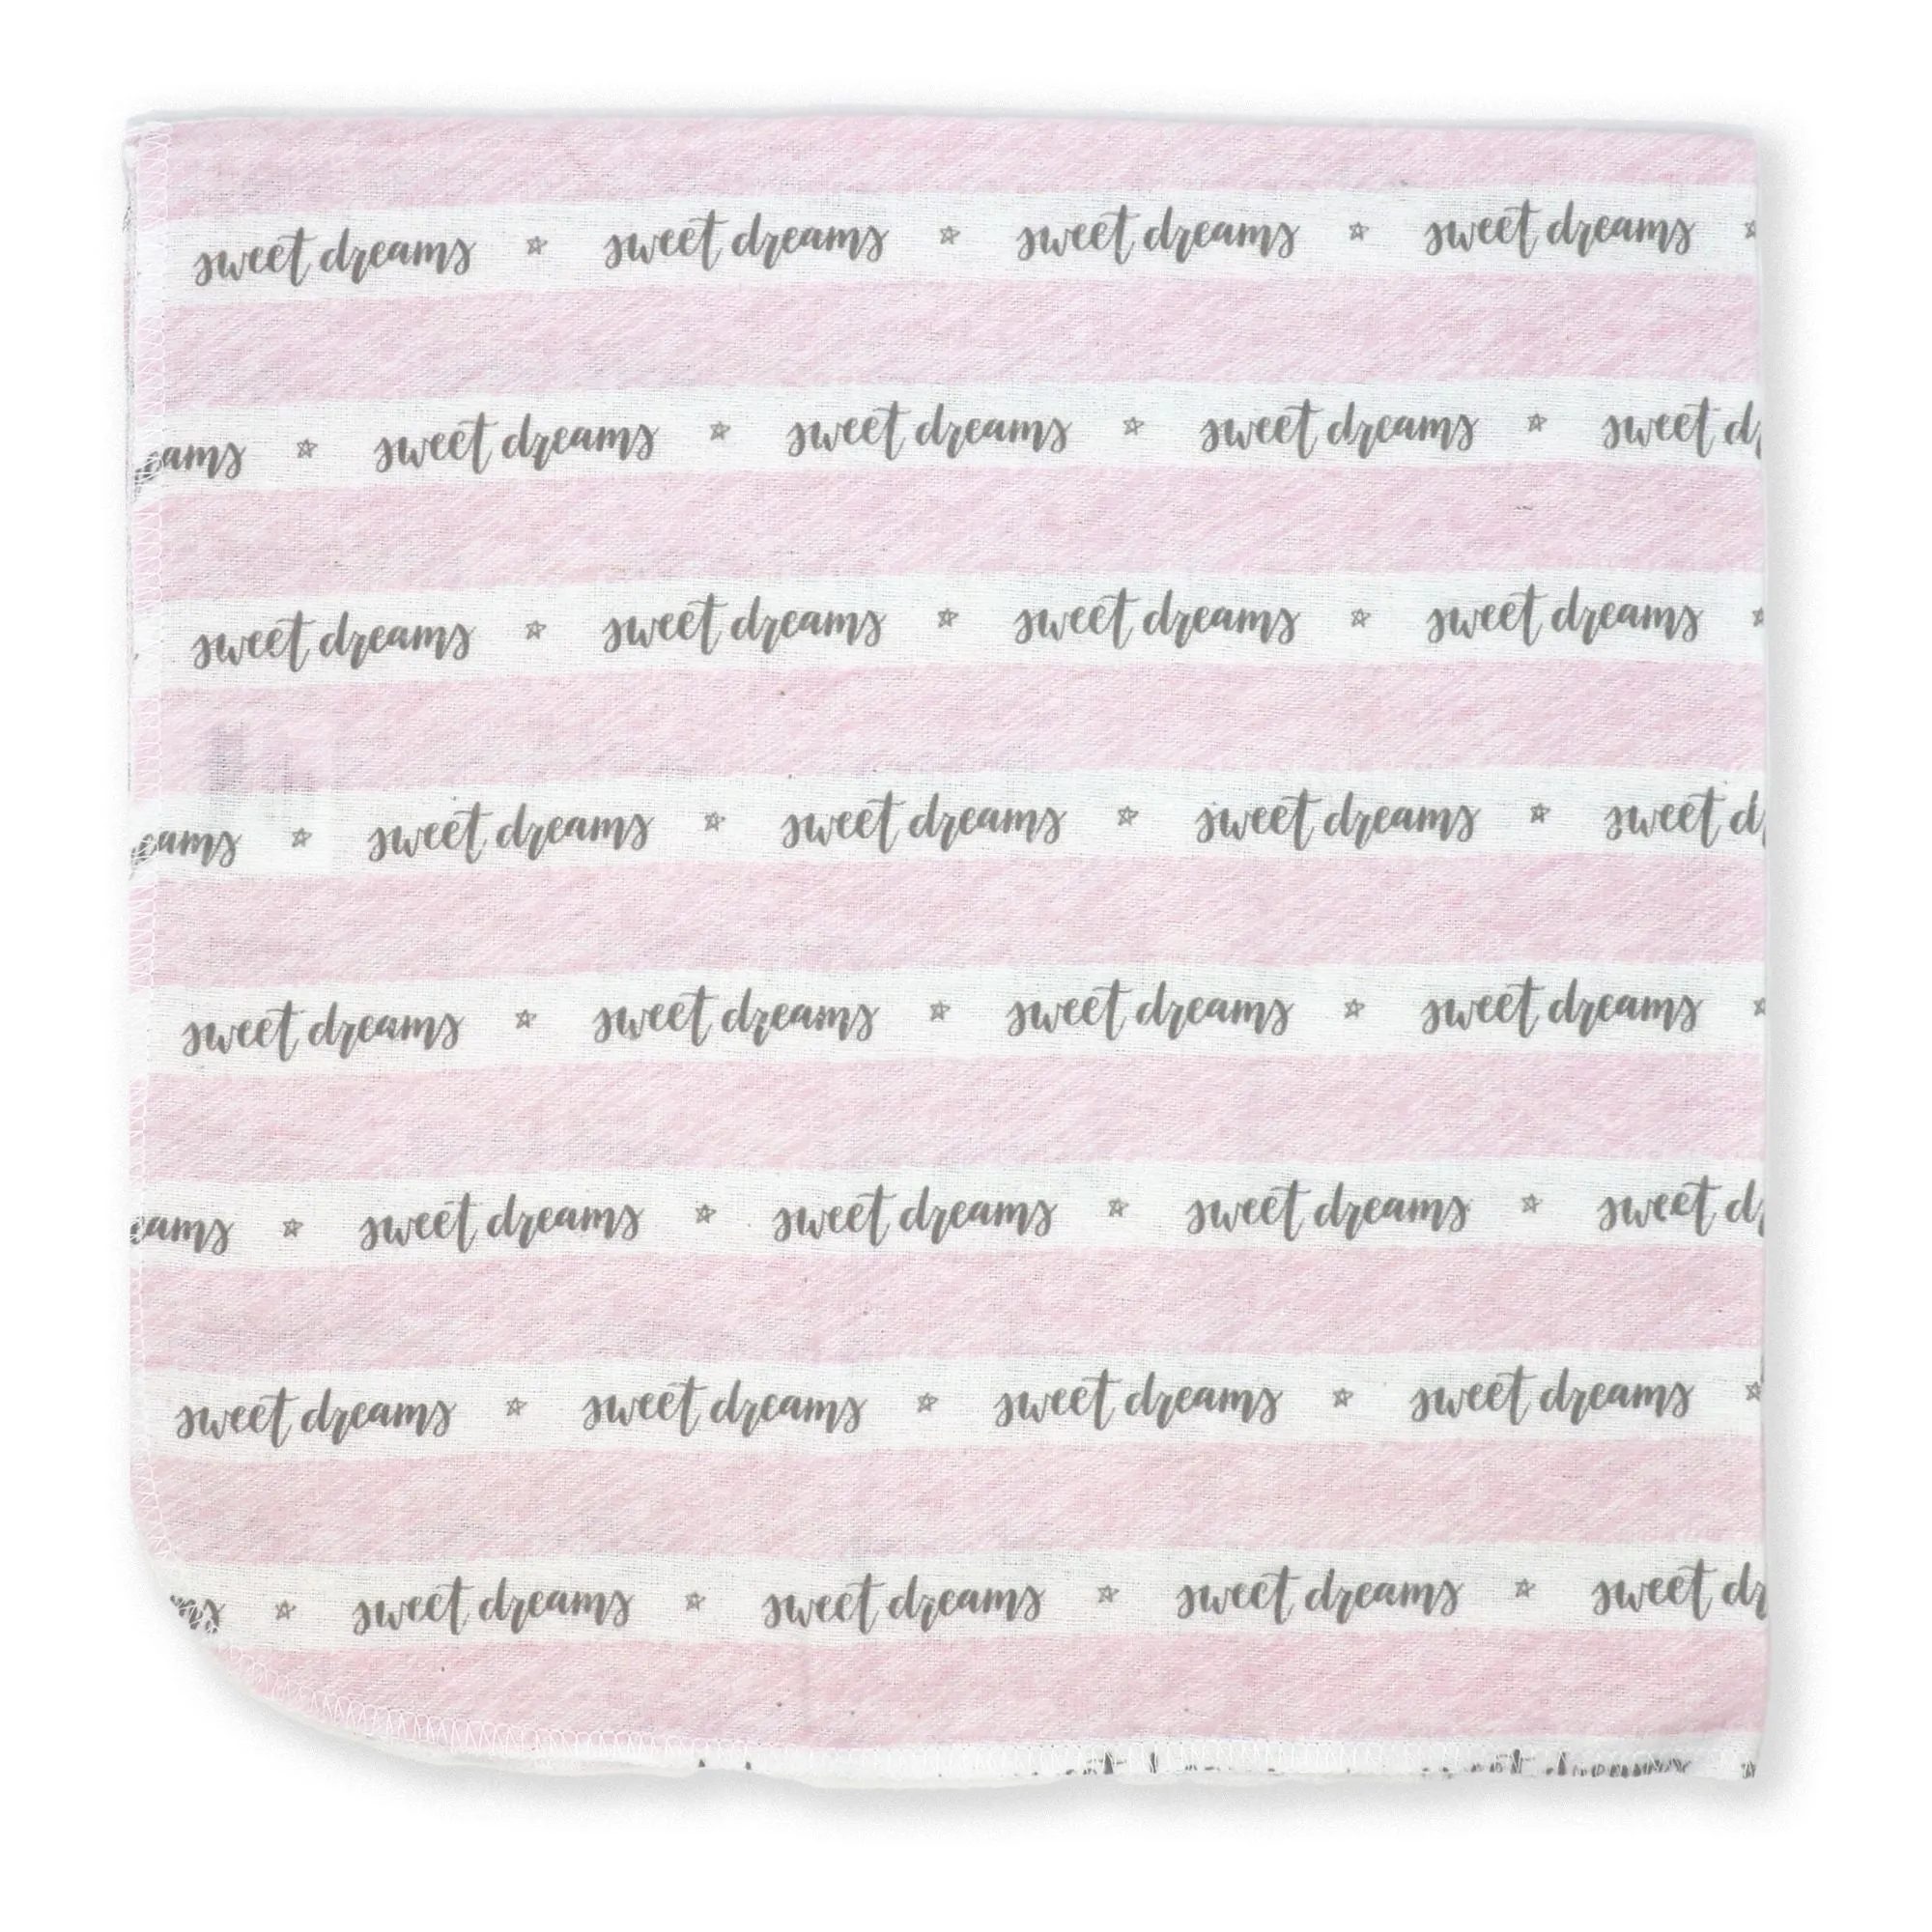 sweet dreams ☆ sweet dreams ☆ sweet dreams ☆ sweet dreams ☆
ams ☆ sweet dreams ☆ sweet dreams ☆ sweet dreams ☆ sweet d
sweet dreams ☆ sweet dreams ☆ sweet dreams ☆ sweet dreams ☆
eams ☆ sweet dreams ☆ sweet dreams ☆ sweet dreams ☆ sweet d
sweet dreams ☆ sweet dreams ☆ sweet dreams ☆ sweet dreams ☆
eams ☆ sweet dreams ☆ sweet dreams ☆ sweet dreams ☆ sweet d
sweet dreams ☆ sweet dreams ☆ sweet dreams ☆ sweet dreams ☆
ms ☆ sweet dreams ☆ sweet dreams ☆ sweet dreams ☆ sweet dr